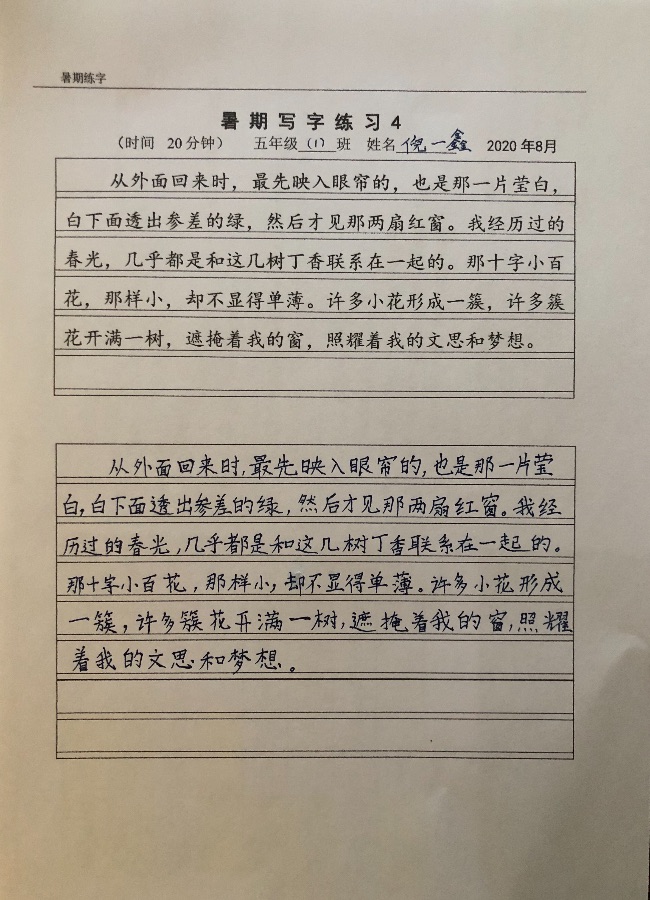 暑期练字
暑期写字练习4
（时间 20分钟） 五年级(1)班 姓名倪一鑫 2020年8月
从外面回来时，最先映入眼帘的，也是那一片莹白，
白下面透出参差的绿，然后才见那两扇红窗。我经历过的
春光，几乎都是和这几树丁香联系在一起的。那十字小百
花，那样小，却不显得单薄。许多小花形成一簇，许多簇
花开满一树，遮掩着我的窗，照耀着我的文思和梦想。
从外面回来时,最先映入眼帘的,也是那一片莹
白,白下面透出参差的绿,然后才见那两扇红窗。我经
历过的春光,几乎都是和这几树丁香联系在一起的。
那十字小百花,那样小,却不显得单薄。许多小花形成
一簇,许多簇花开满一树,遮掩着我的窗,照耀
着我的文思和梦想。